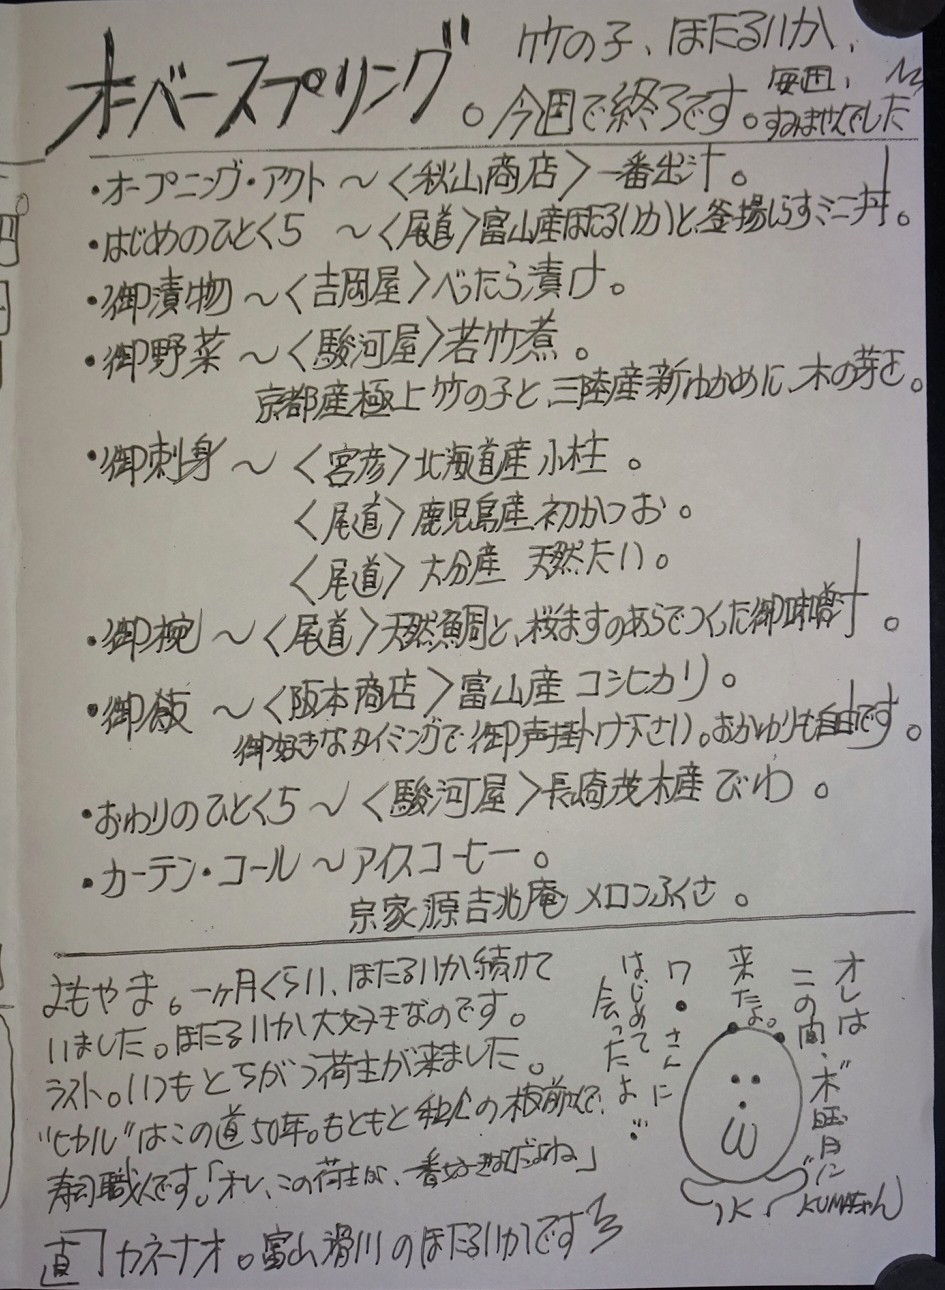 オーバースプリング。
竹の子、ほたるいか、
今週で終了です。
毎週、
すみませんでした
・オープニング・アクト〜〈秋山商店〉一番出汁。
・はじめのひとくち 〜〈尾道〉富山産ほたるいかと、釜揚しらすミニ丼。
・御漬物〜〈吉岡屋〉べったら漬け。
・御野菜〜〈駿河屋〉若竹煮。
京都産極上竹の子と、三陸産新わかめに、木の芽を。
・御刺身〜〈宮彦〉北海道産小柱。
〈尾道〉鹿児島産初かつお。
〈尾道〉大分産 天然たい。
・御椀〜〈尾道〉天然鯛と、桜ますのあらでつくった御味噌汁。
・御飯〜〈阪本商店〉富山産コシヒカリ。
御好きなタイミングで御声掛け下さい。おかわりも自由です。
・おわりのひとくち〜〈駿河屋〉長崎茂木産びわ。
・カーテン・コール〜アイスコーヒー。
宗家源吉兆庵 メロンふくさ。
よもやま。一ヶ月くらい、ほたるいか続けて
いました。ほたるいか大好きなのです。
ラスト。いつもとちがう荷主が来ました。
"ヒカル"はこの道50年。もともと私の板前で、
寿司職人です。「オレ、この荷主が、一番好きなんだよね」
直 カネナオ。富山滑川のほたるいかです
オレは
この間・ボ
来たよ。
ワ・さんに
はじめて
会ったよ
KUMAちゃん